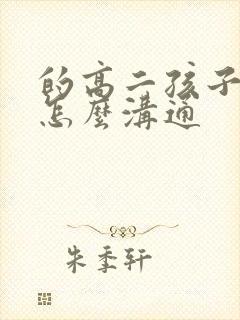 的高二孩子
怎麼溝通
朱季轩